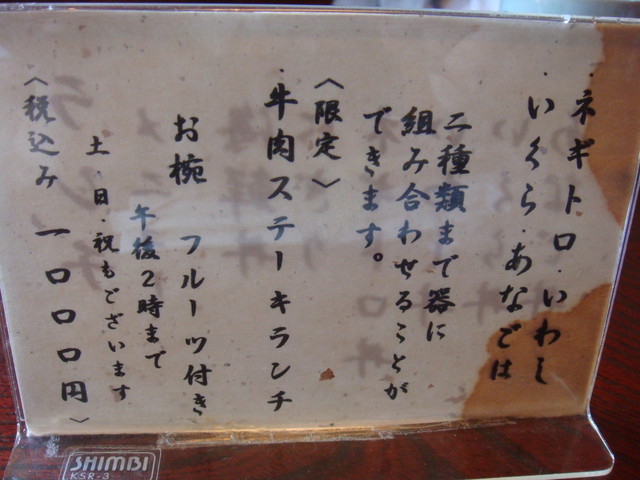 ・ネギトロ・いわし
・いくら・あなごは
二種類まで器に
組み合わせることが
できます。
〈限定〉
・牛肉ステーキランチ
お椀 フルーツ付き
午後2時まで
土・日・祝もございます
〈税込み 一〇〇〇円〉
SHIMBI
KSR-3